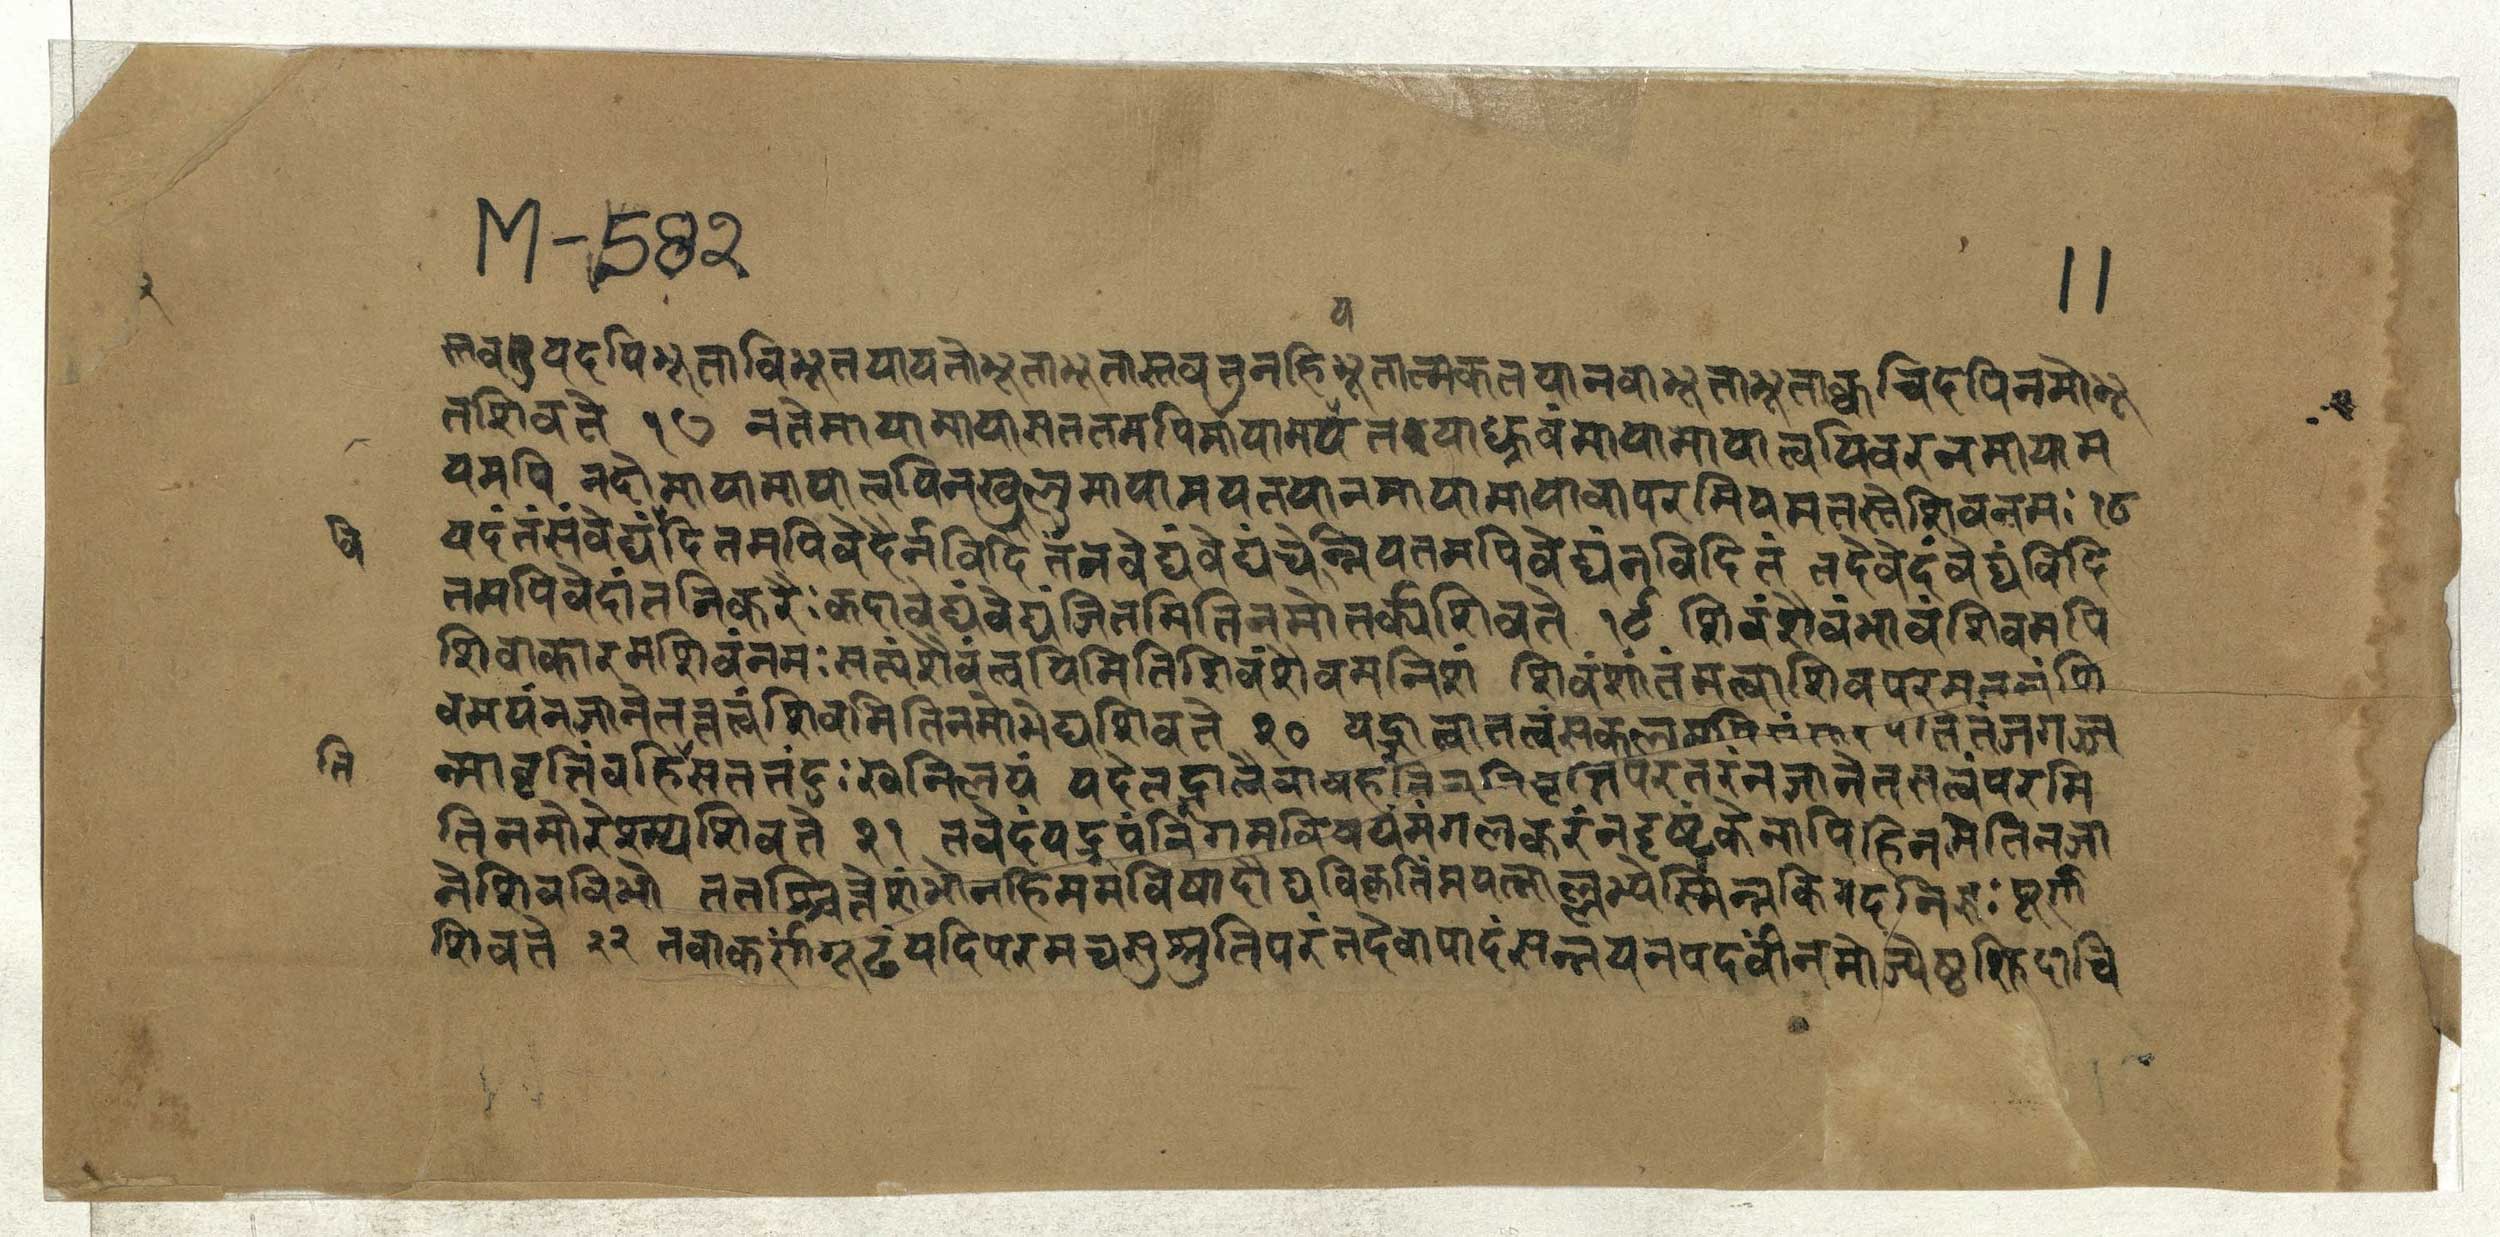 M-582
11
य
स्तवतुयदपिभूताविभूतयायतोभूताभूतास्तवतुनहिभूतात्मकतयानवाभूताभूताक्वचिदपिनमोभू
तशिवते १७ नतेमायामायासततमपिमायामये त याध्रुवंमायामायात्वयिवरनमायाम
यमपि नदोमायामायात्वयिनखुलुमायामयतयानमायामायावापरमियमतस्तेशिवनमः १८
वि
यदंतंसंवेद्यंदितमपिवेदैर्नविदितंनवेद्यंवेद्यंचेन्नियतमपिवेद्यंनविदितं तदेवेदंवेद्यंविदि
तमपिवेदांतनिकरैः कदावेद्यंवेद्यंजितमितिनमोतर्क्यशिवते १९ शिवंशैवंभावंशिवमपि
शिवाकारमशिवंनमः सत्यंशैवंत्वयिमितिशिवंशैवमनिशं शिवंशांतंमत्वाशिवपरमतत्वंशि
वमयंनजानेतत्तत्वंशिवमितिनमोभेद्यशिवते २० यद्ज्ञात्वातत्वंसकलमपि तितंजगज्ज
ति
न्मावृत्तिंवहिसततंदुःखनिलयं यदेतद्ज्ञात्वैवावहति परतरंनजानेतत्तत्वंपरमि
तिनमोरेरम्यशिवते २१ तवेदंयद्रूपंनिगमविषयंमंगलकरंनदृष्टंकेनापिहिनमितिनजा
नेशिवविभो ततश्चित्तेशंभोनहिममविषादोद्यविकृतिंमयत्नाल्लभ्येस्मिन्नकि पूर्ण
शिवते २२ तवाकर्णगूढंयदिपरमच्यसुश्रुतिपरंतदेवापादंसन्नयनपदवींनमोज्येष्ठ चि